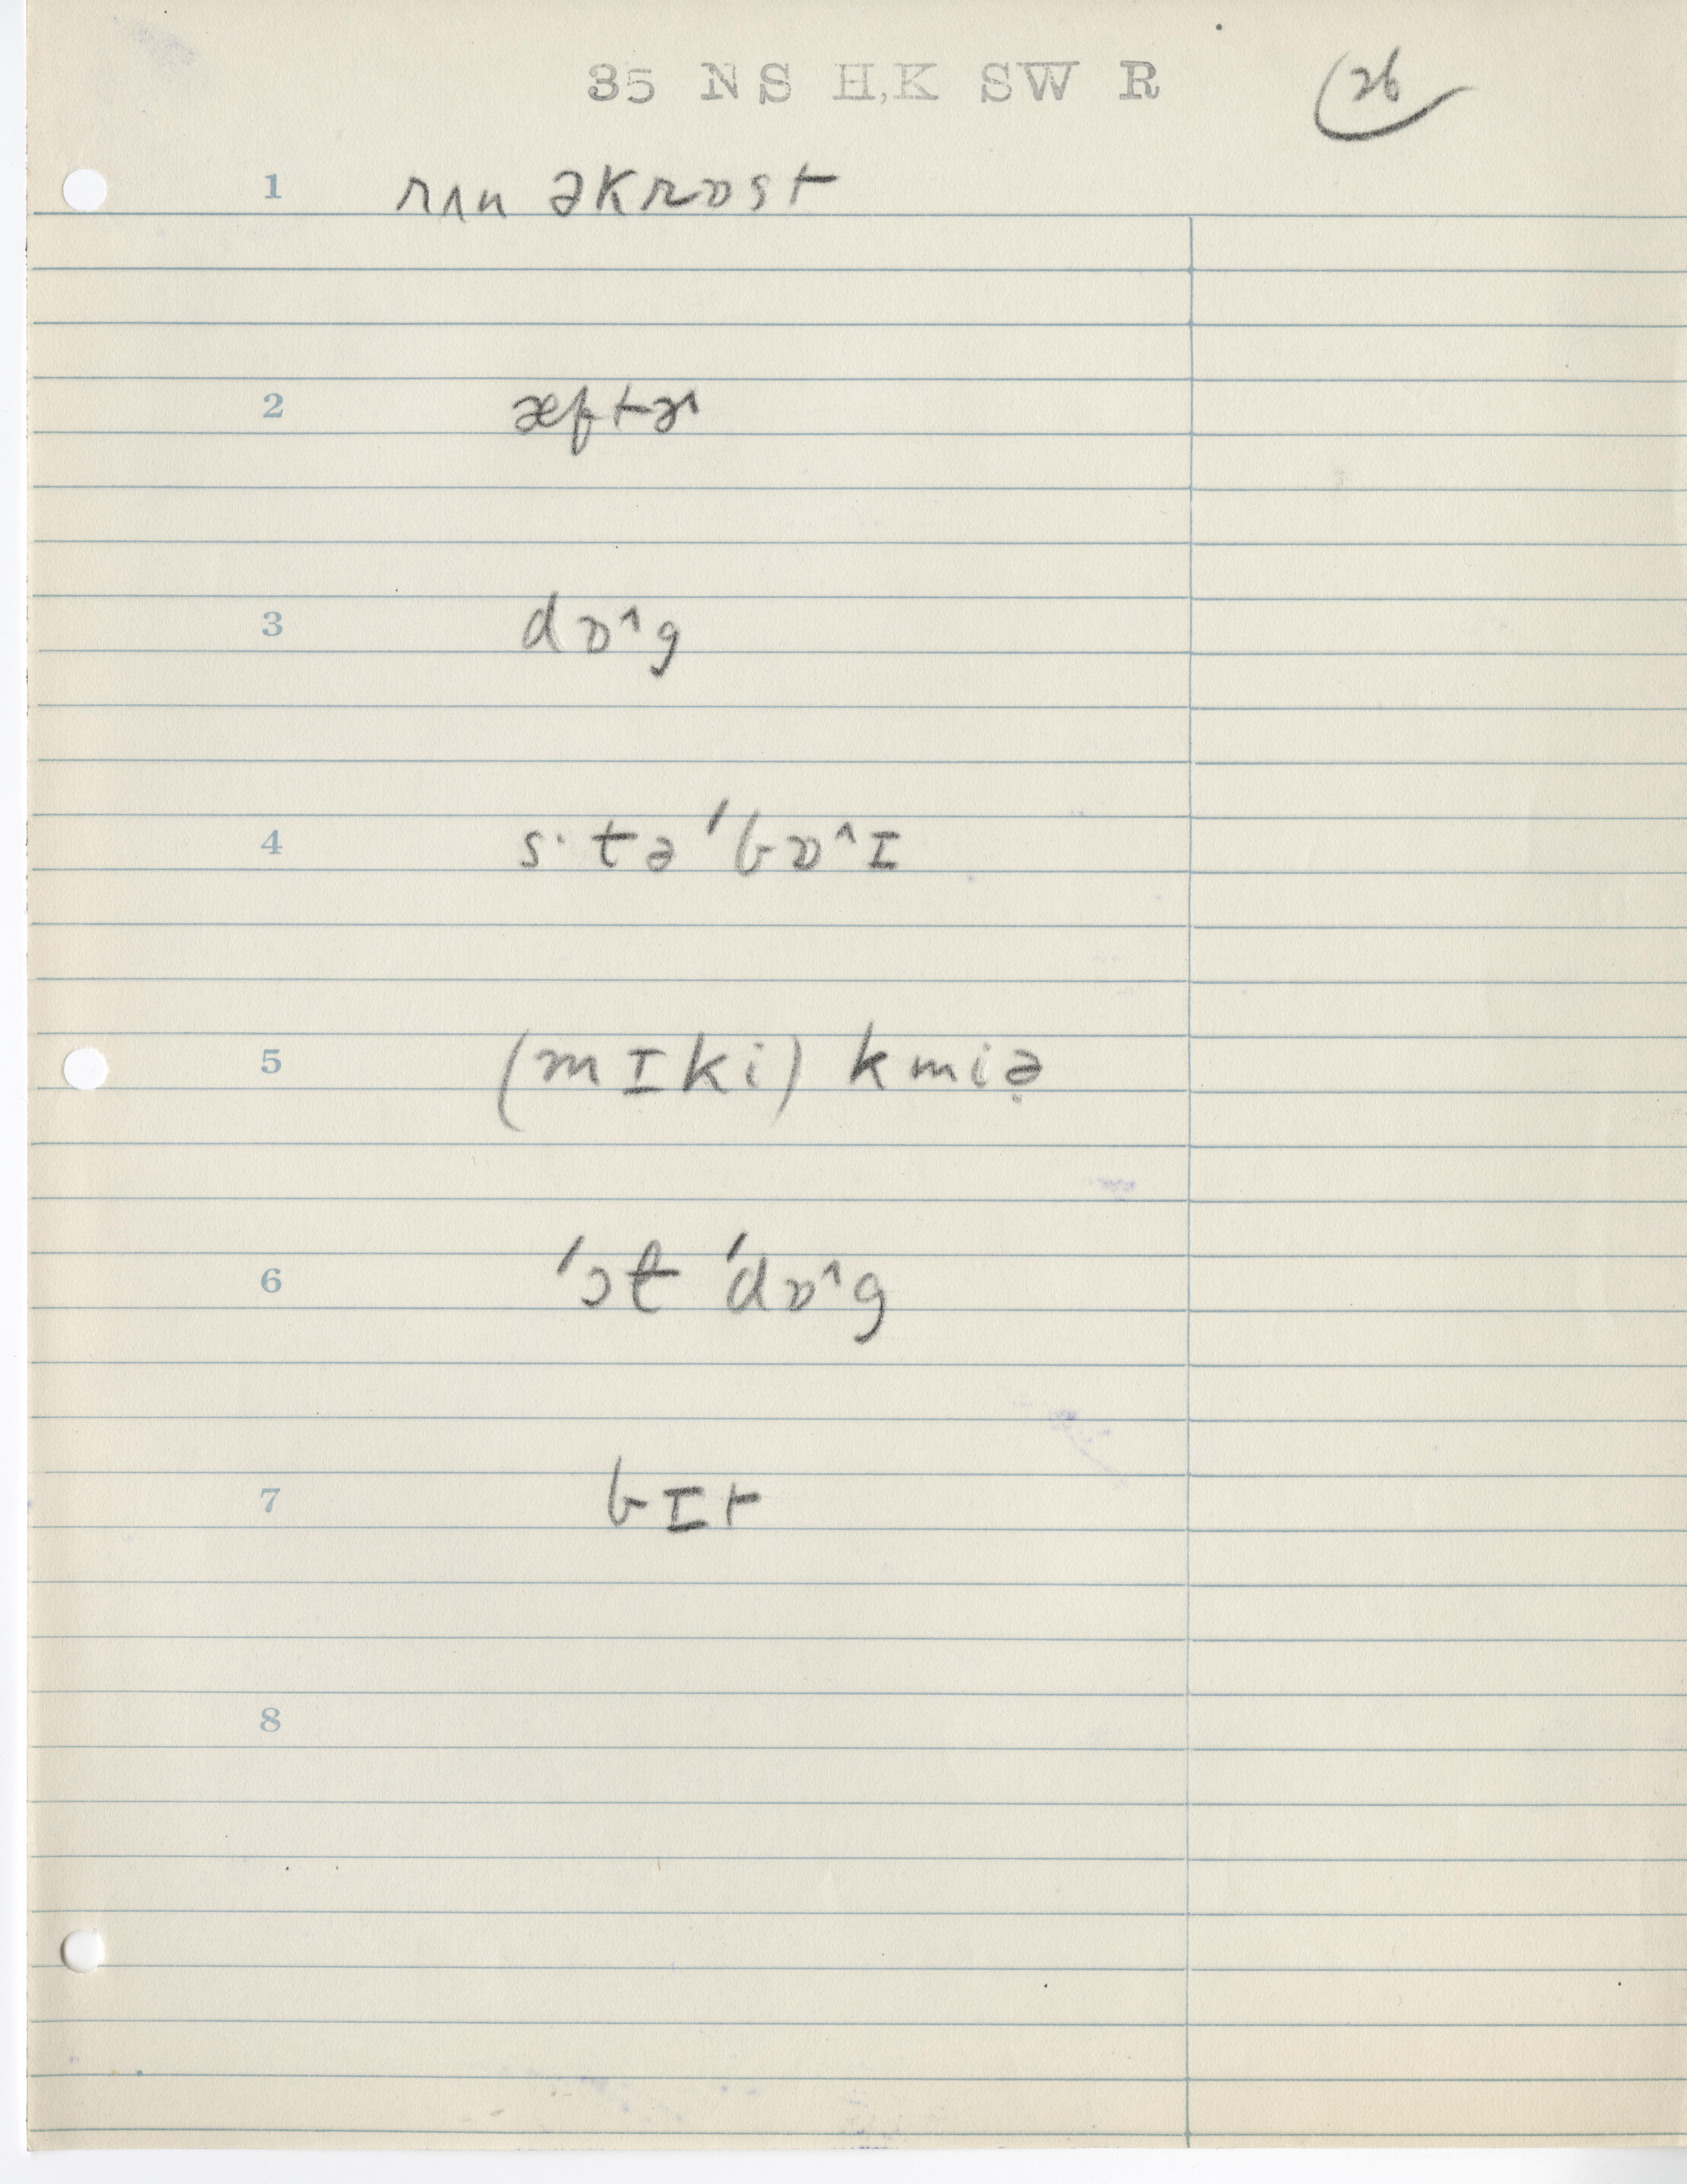 35 NS H,K SW R 26
1 rʌn əkrɒst
2 æftɚ
3 dɒ˄g
4 s·tə ˈbɒ˄ɪ
5 (mɪki) kmiə̣
6 ˈɔt ˈdɒ˄g
7 bɪt
8